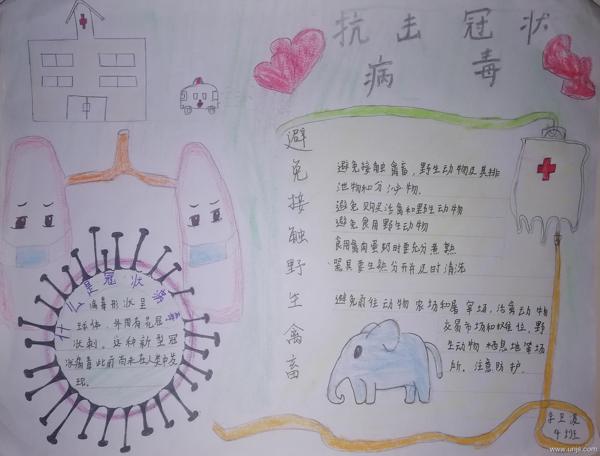 抗击冠状
病毒
避免接触野生禽畜
避免接触禽畜，野生动物及其排
泄物和分泌物。
避免购买活禽和野生动物
避免食用野生动物
食用禽肉蛋奶时要充分煮熟
器具要生熟分开并及时清洗
避免前往动物农场和屠宰场，活禽动物
交易市场和摊位，野
生动物栖息地等场
所。注意防护。
什么是冠状病毒
病毒形状呈
球体，外周有花冠
状刺。这种新型冠
状病毒此前尚未在人类中发
现。
4班
www.unjs.com